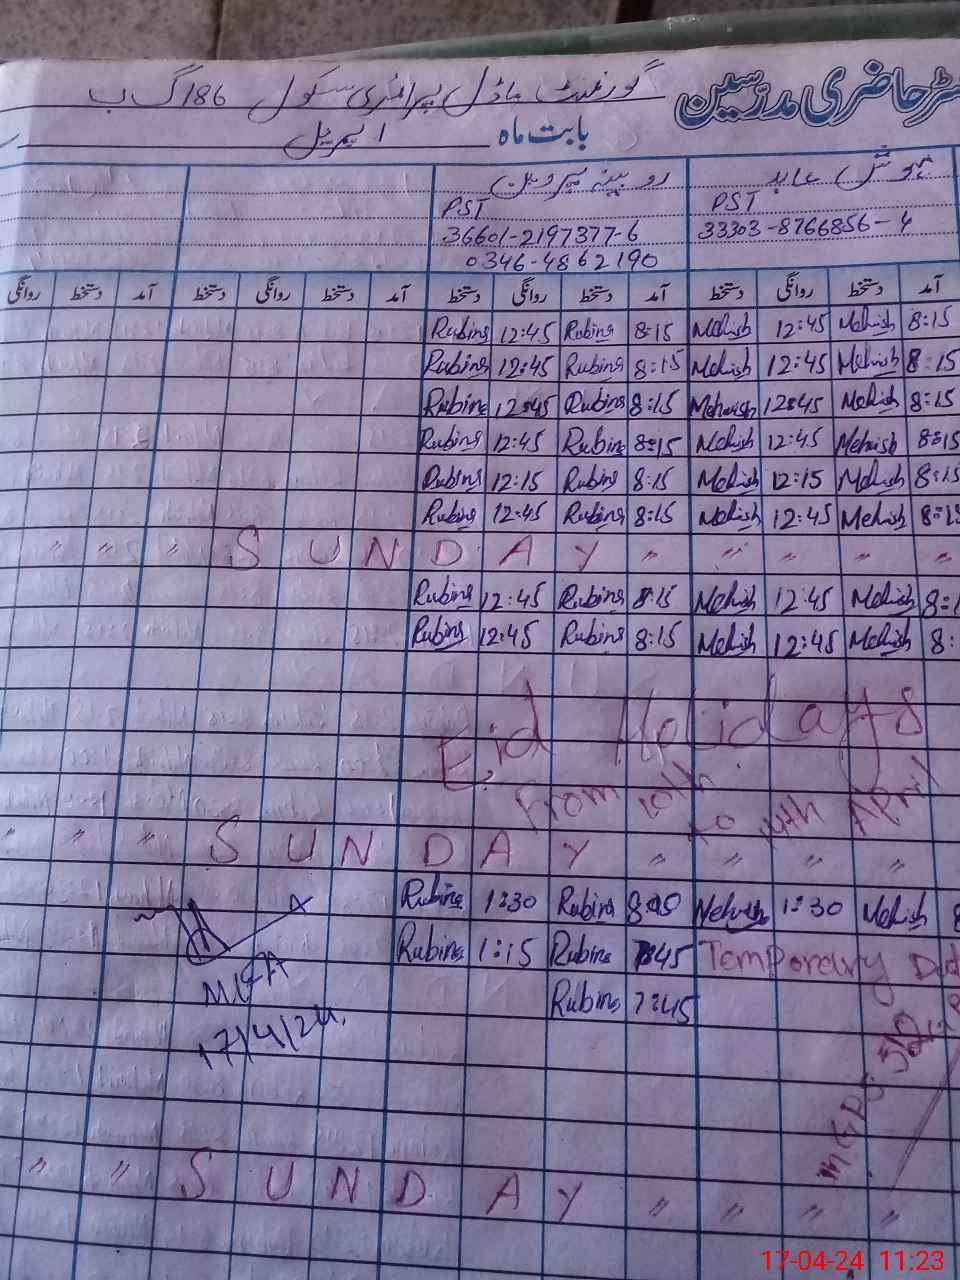 گورنمنٹ ماڈل پرائمری سکول 186 گ ب
حاضری مدرسین
بابت ماہ اپریل
روبینہ پروین
PST PST
36601-2197377-6 33303-8766856-4
0346-4862190
روانگی دستخط آمد دستخط روانگی دستخط آمد دستخط روانگی دستخط آمد دستخط روانگی دستخط آمد
Rubina 12:45 Rubina 8:15 Mehish 12:45 Mehish 8:15
Rubina 12:45 Rubina 8:15 Mehish 12:45 Mehish 8:15
Rubina 12:45 Rubina 8:15 Mehwish 12:45 Mehish 8:15
Rubina 12:45 Rubina 8:15 Mehish 12:45 Mehish 8:15
Rubina 12:15 Rubina 8:15 Mehish 12:15 Mehish 8:15
Rubina 12:45 Rubina 8:15 Mehish 12:45 Mehish 8:15
" " " S U N D A Y " " " " "
Rubina 12:45 Rubina 8:15 Mehish 12:45 Mehish 8:1
Rubina 12:45 Rubina 8:15 Mehish 12:45 Mehish 8:
Eid Holidays
From 10th to 14th April
" " " S U N D A Y " " " "
Rubina 1:30 Rubina Mehish 1:30 Mehish 8
Rubina 1:15 Rubina 7:45 Temporary
Rubina 7:45
MEA
17/4/24.
MGPS
" " S U N D A Y " " "
17-04-24 11:23